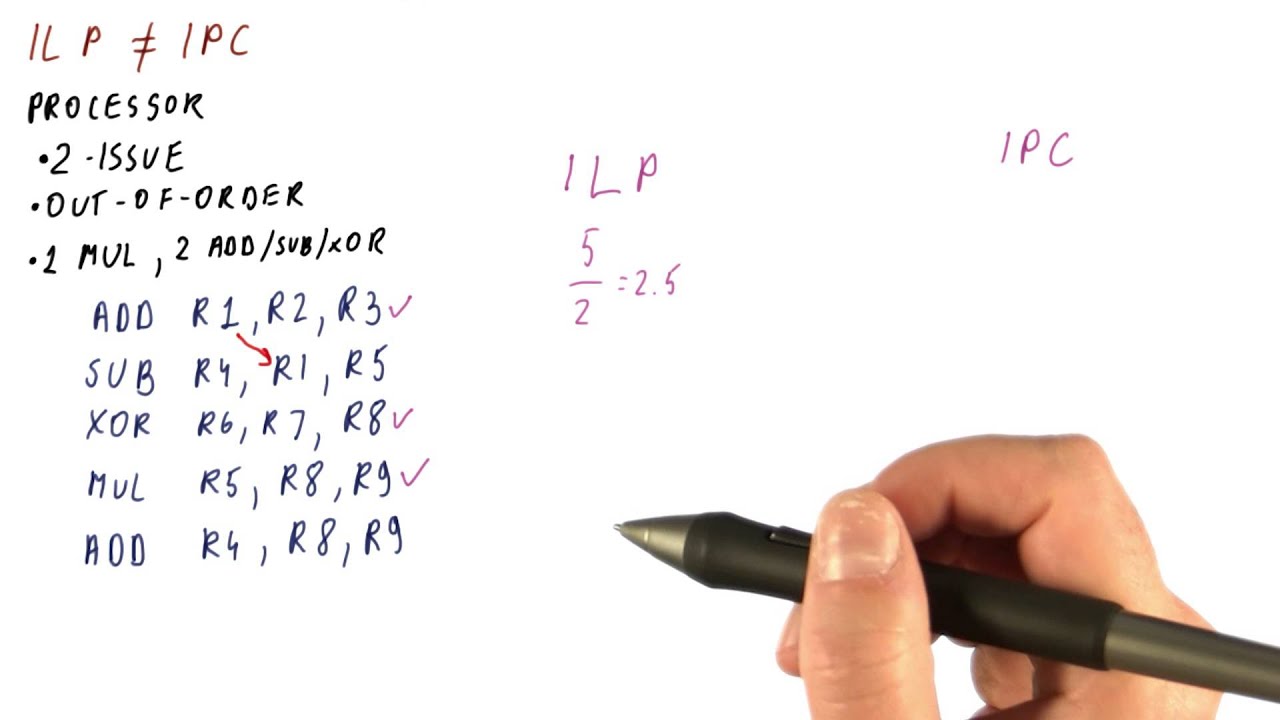 ILP ≠ IPC
PROCESSOR
• 2-ISSUE
• OUT-OF-ORDER
• 1 MUL, 2 ADD/SUB/XOR
ADD R1, R2, R3 ✓
SUB R4, R1, R5
XOR R6, R7, R8 ✓
MUL R5, R8, R9 ✓
ADD R4, R8, R9
ILP
5/2 = 2.5
IPC